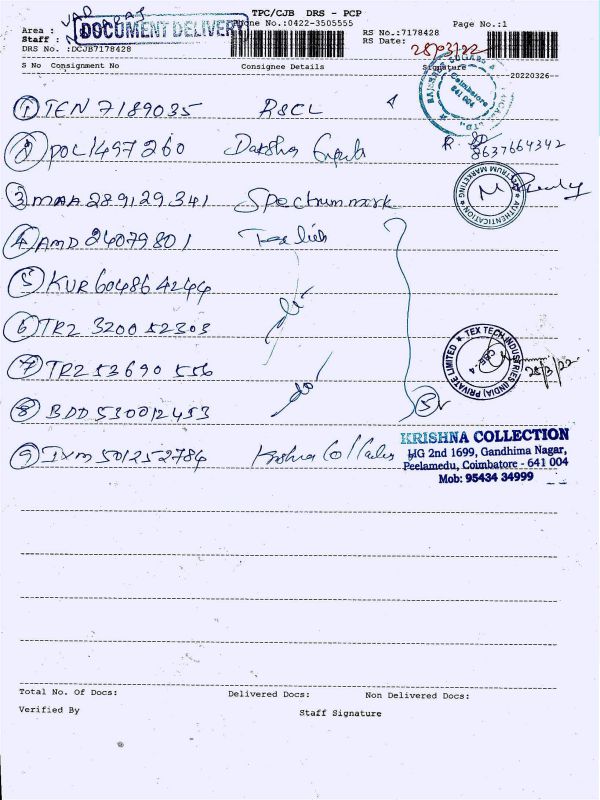 TPC/CJB DRS - PCP
Area :
DOCUMENT DELIVERY
Phone No.:0422-3505555
Page No.:1
Staff :
RS No.:7178428
DRS No. :DCJB7178428
RS Date: 28/03/22
S No Consignment No Consignee Details Signature
20220326
① TEN 7189035 RSCL
Coimbatore
641 004
② POL1497260 Daksha
8637664342
③ MAA 289129341 Spectrum mark
SPECTRUM MARKETING * AUTHENTICATION *
④ AMD 24079801
⑤ KUR604864244
⑥ TRZ 320052303
⑦ TRZ 53690556
TEX TECH INDUSTRIES (INDIA) PRIVATE LIMITED *
CBE-4
28/3/22
⑧ BDD 530012453
⑤
⑨ IXM 501252784 Krishna
KRISHNA COLLECTION
HIG 2nd 1699, Gandhima Nagar,
Peelamedu, Coimbatore - 641 004
Mob: 95434 34999
Total No. Of Docs: Delivered Docs: Non Delivered Docs:
Verified By Staff Signature